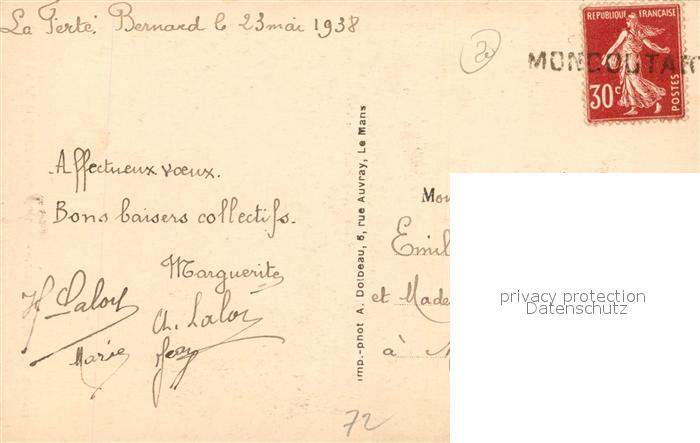 La Ferté Bernard le 23 mai 1938
2
MONCOUTAN
RÉPUBLIQUE FRANÇAISE
30c
POSTES
Affectueux vœux.
Bons baisers collectifs.
Marguerite
Ch. Laloy
Marie
Imp.-phot A. Dolbeau, 5, rue Auvray, Le Mans
Mon
Emil
et Made
à
privacy protection
Datenschutz
72